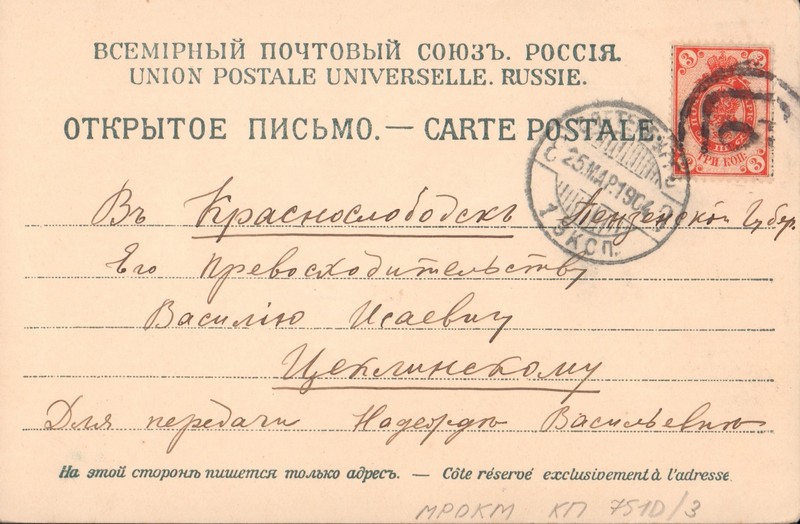 ВСЕМІРНЫЙ ПОЧТОВЫЙ СОЮЗЪ. РОССІЯ.
UNION POSTALE UNIVERSELLE. RUSSIE.
ОТКРЫТОЕ ПИСЬМО. — CARTE POSTALE.
3 3
ТРИ КОП.
3
25 МАР 1904
7 ЭКСП.
Въ Краснослободскъ Пензенской Губер.
Его Превосходительству
Василію Исаевичу
Цеклинскому
Для передачи Надеждѣ Васильевнѣ
На этой сторонѣ пишется только адресъ. — Côte réservé exclusivement à l'adresse.
МРОКМ КП 7510/3